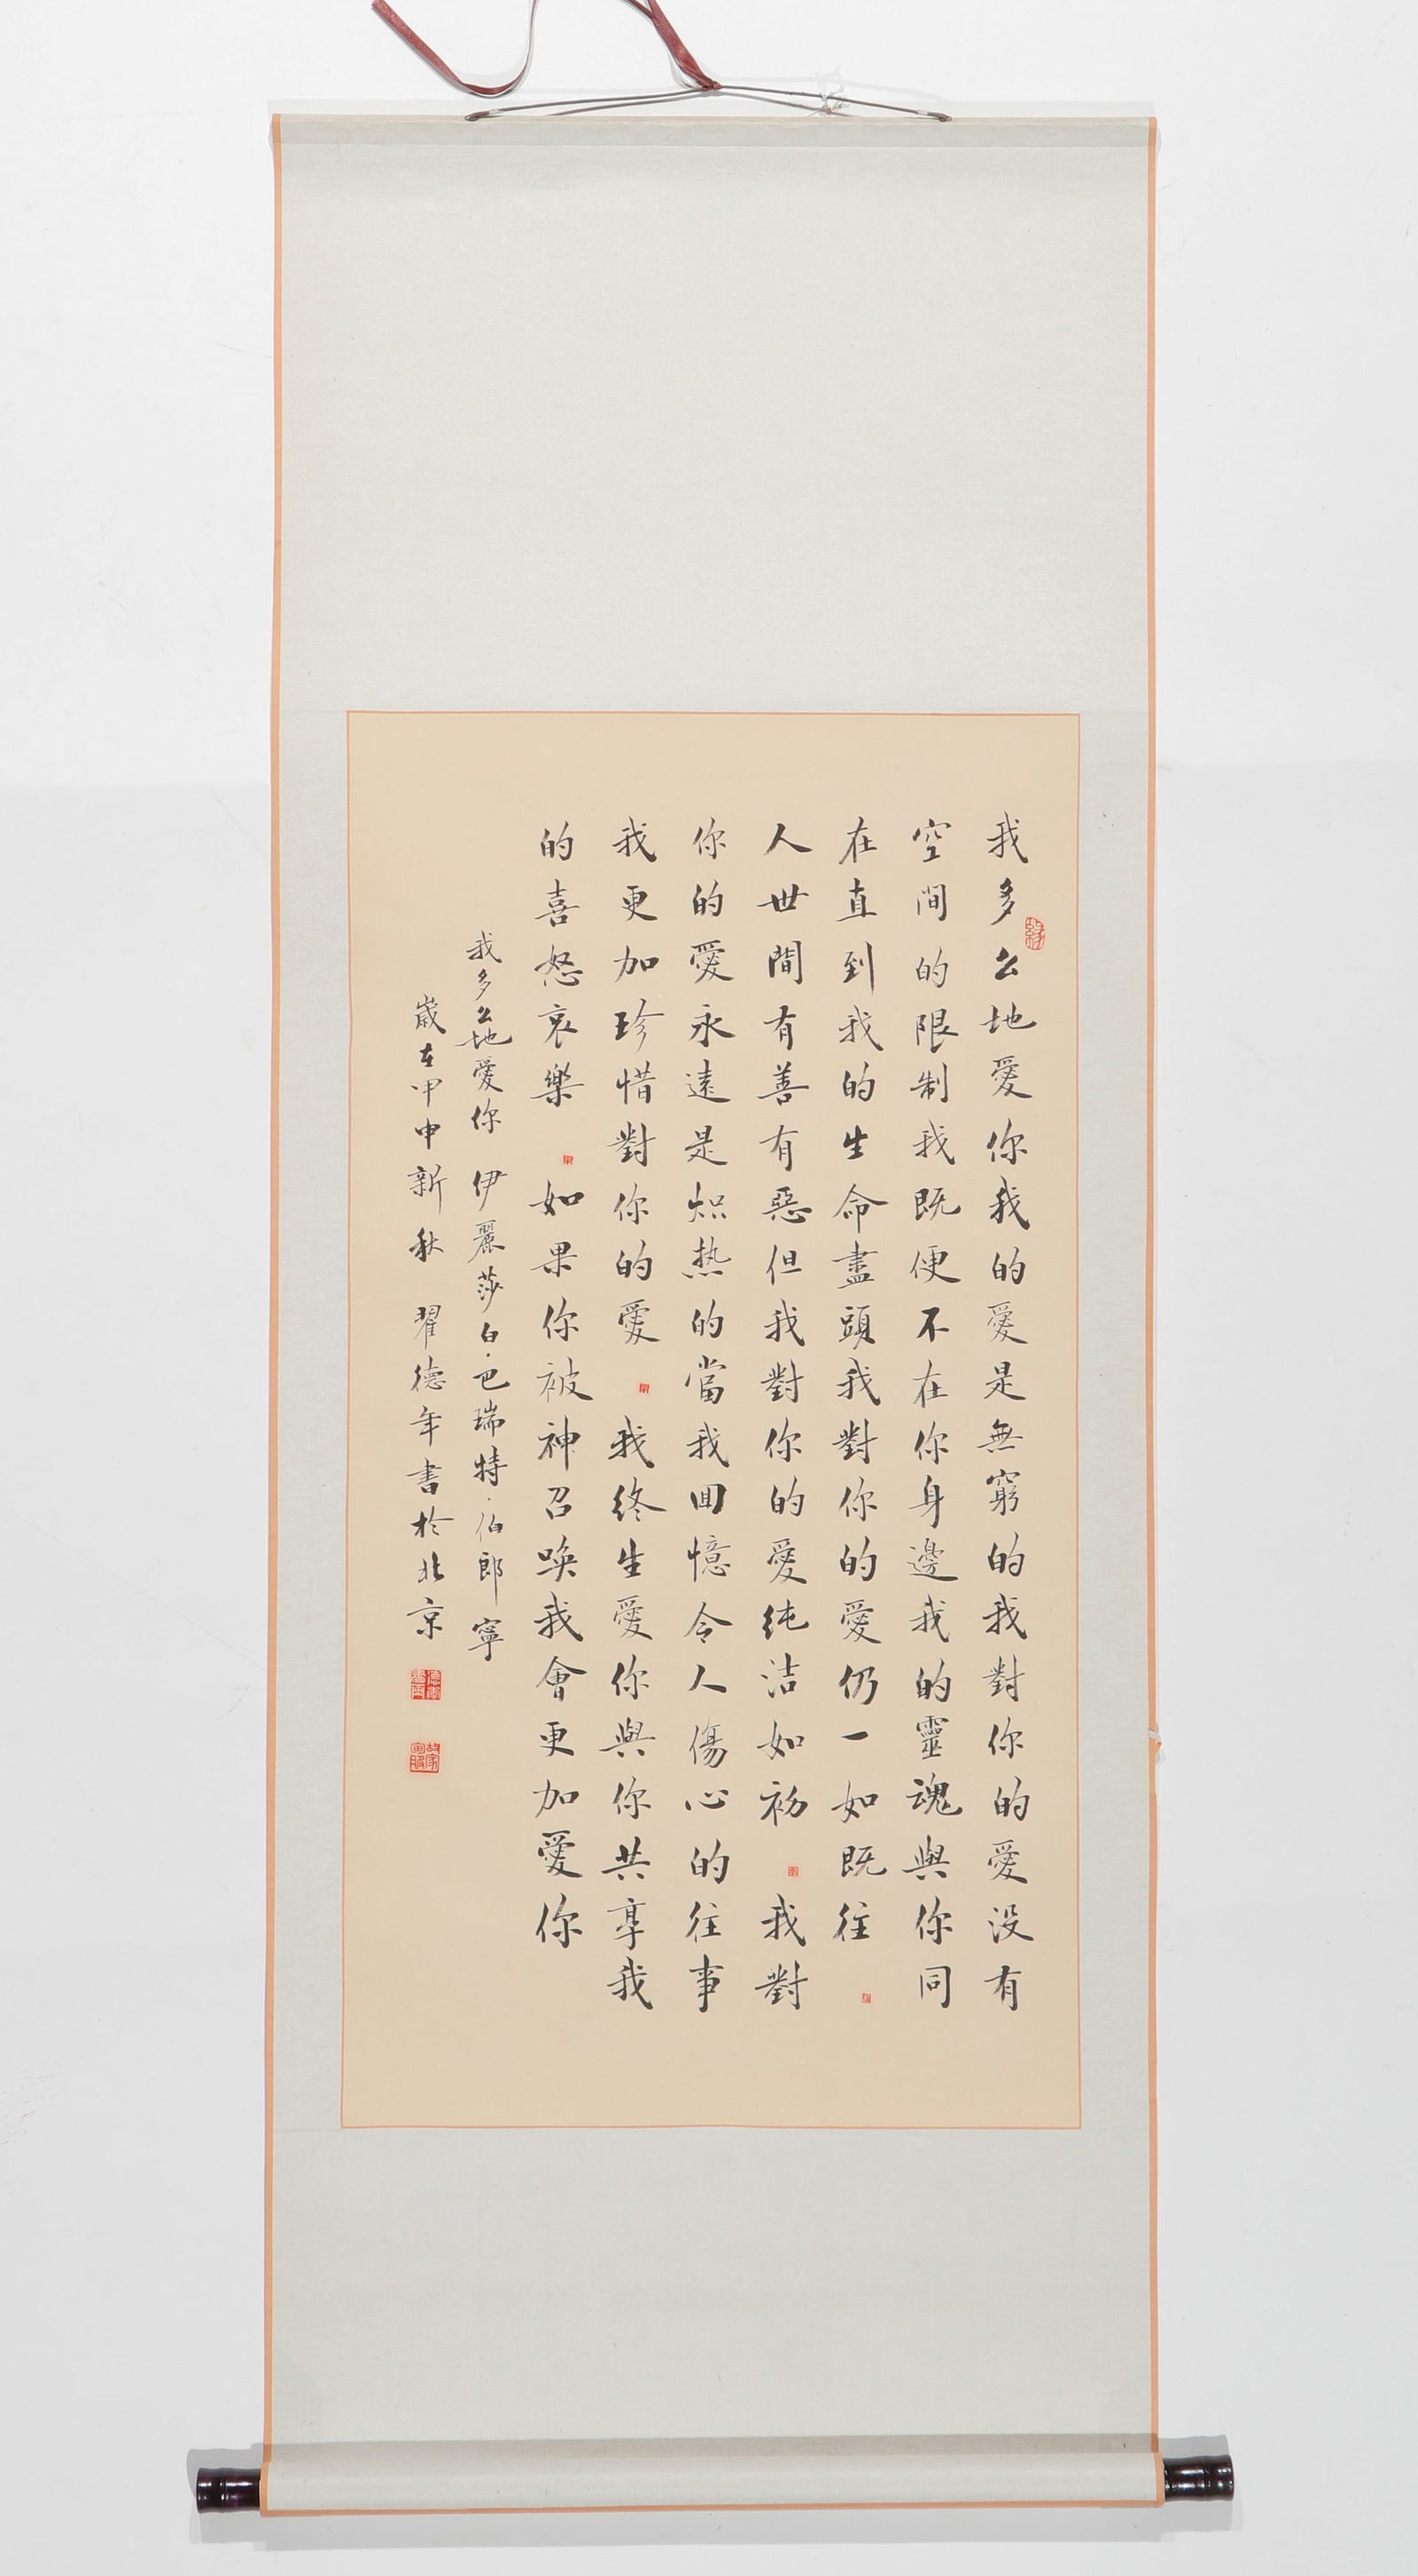 我多么地愛你我的愛是無窮的我對你的愛没有
空間的限制我既便不在你身邊我的靈魂與你同
在直到我的生命盡頭我對你的愛仍一如既往
人世間有善有惡但我對你的愛純洁如初我對
你的愛永遠是炽热的當我回憶令人傷心的往事
我更加珍惜對你的愛我終生愛你與你共享我
的喜怒哀樂如果你被神召唤我會更加愛你
我多么地愛你 伊麗莎白·巴瑞特·伯郎寧
嵗在甲申新秋 翟德年書於北京